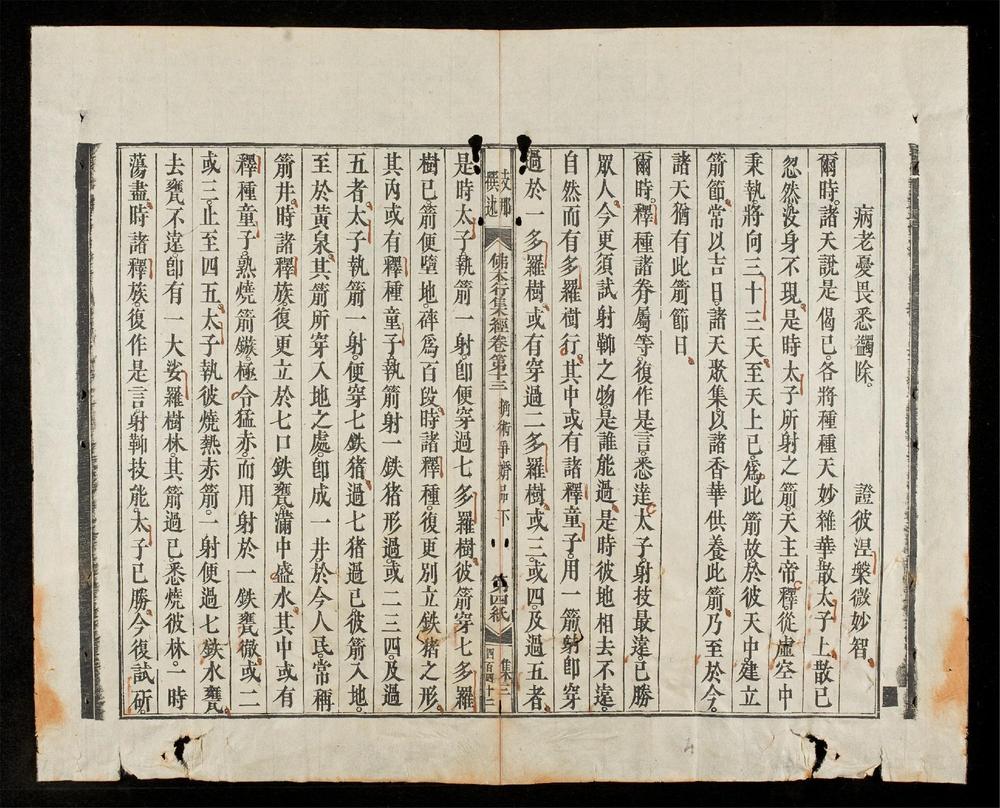 病老憂畏悉蠲除。 證彼涅槃微妙智。
爾時。諸天說是偈已。各將種種天妙雜華。散太子上。散已
忽然。沒身不現。是時太子所射之箭。天主帝釋從虛空中
秉執。將向三十三天。至天上已。爲此箭故。於彼天中。建立
箭節。常以吉日。諸天聚集。以諸香華供養此箭。乃至於今。
諸天猶有此箭節日。
爾時。釋種諸眷屬等。復作是言。悉達太子。射技最遠。已勝
眾人。今更須試射鞕之物。是誰能過。是時彼地相去不遠。
自然而有多羅樹行。其中或有諸釋童子。用一箭射。卽穿
過於一多羅樹。或有穿過二多羅樹。或三。或四。及過五者。
支那撰述 佛本行集經卷第十三 捔術爭婚品下 第四紙 集三 四百四十二
是時太子執箭一射。卽便穿過七多羅樹。彼箭穿七多羅
樹已。箭便墮地。碎爲百段。時諸釋種。復更別立鉄猪之形。
其內或有釋種童子。執箭射一鉄猪形過。或二三四及過
五者。太子執箭一射。便穿七鉄猪過。七猪過已。彼箭入地。
至於黃泉。其箭所穿入地之處。卽成一井。於今人民。常稱
箭井。時諸釋族。復更立於七口鉄甕。滿中盛水。其中或有
釋種童子。熟燒箭鏃。極令猛赤。而用射於一鉄甕徹。或二
或三。止至四五。太子執彼燒熱赤箭。一射便過七鉄水甕。
去甕不遠。卽有一大娑羅樹林。其箭過已。悉燒彼林。一時
蕩盡。時諸釋族。復作是言。射鞕技能。太子已勝。今復試斫。